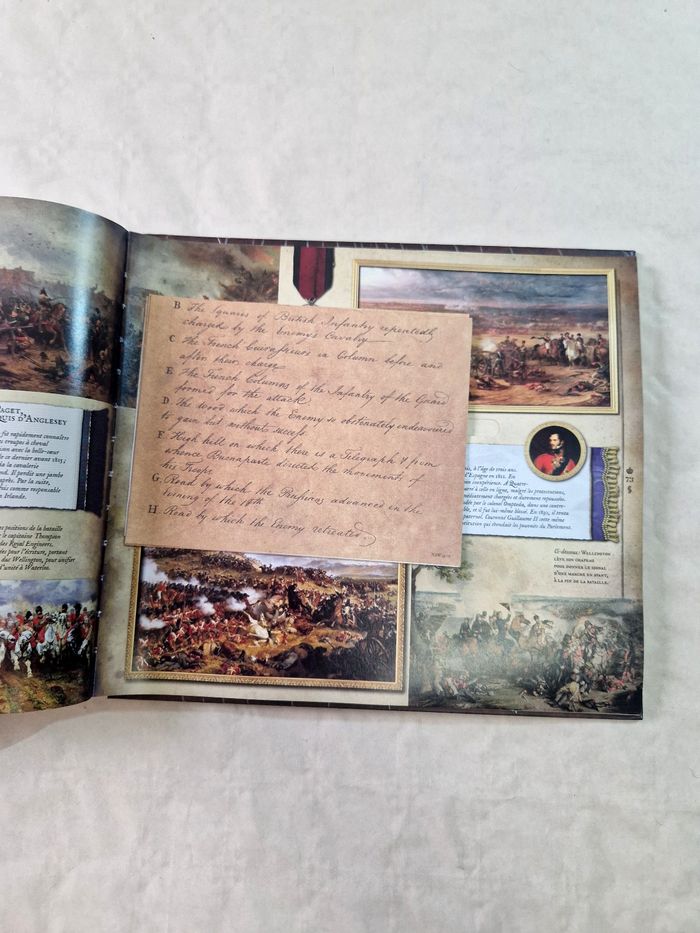 PAGET,
QUIS D'ANGLESEY
fit rapidement connaître
troupes à cheval
avec la belle-sœur
ce dernier avant 1815;
la cavalerie
Il perdit une jambe
Par la suite,
comme responsable
en Irlande.
positions de la bataille
le capitaine Thompson
des Royal Engineers.
pour l'écriture, portant
duc Wellington, pour unifier
d'unité à Waterloo.
B The Squares of British Infantry repeatedly
charged by the Enemy's Cavalry
C The French Cuirassiers in Column before and
after their charge
E The French Columns of the Infantry of the Guard
formed for the attack
D The wood which the Enemy so obstinately endeavoured
to gain but without success
F High hill on which there is a Telegraph & from
whence Buonaparte directed the movements of
his Troops
G Road by which the Prussians advanced in the
evening of the 18th
H Road by which the Enemy retreated
à l'âge de trois ans.
Espagne en 1811. En
A Quatre-
à celle en ligne, malgré les protestations,
chargée et durement repoussée.
par le colonel Ompteda, dans une contre-
et il fut lui-même blessé. En 1830, il rentra
paternel. Couronné Guillaume II cette même
73
Ci-dessous: Wellington
lève son chapeau
pour donner le signal
d'une marche en avant,
à la fin de la bataille.